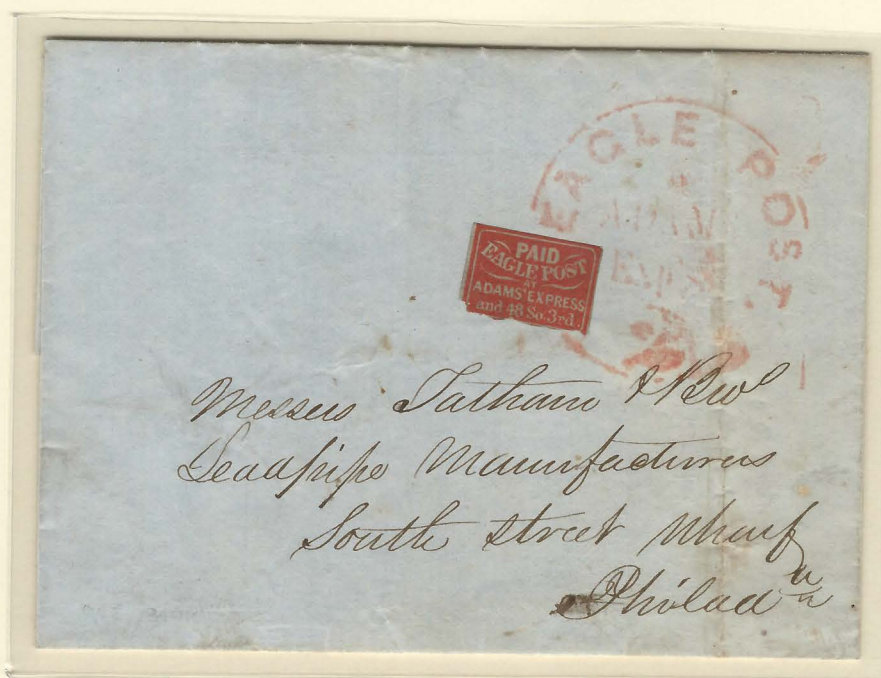 EAGLE POST
AT
ADAMS
EXP
PAID
EAGLE POST
AT
ADAMS' EXPRESS
and 48 So. 3rd.
Messers Tatham & Bros
Leadpipe Manufacturers
South street Wharf
Philada